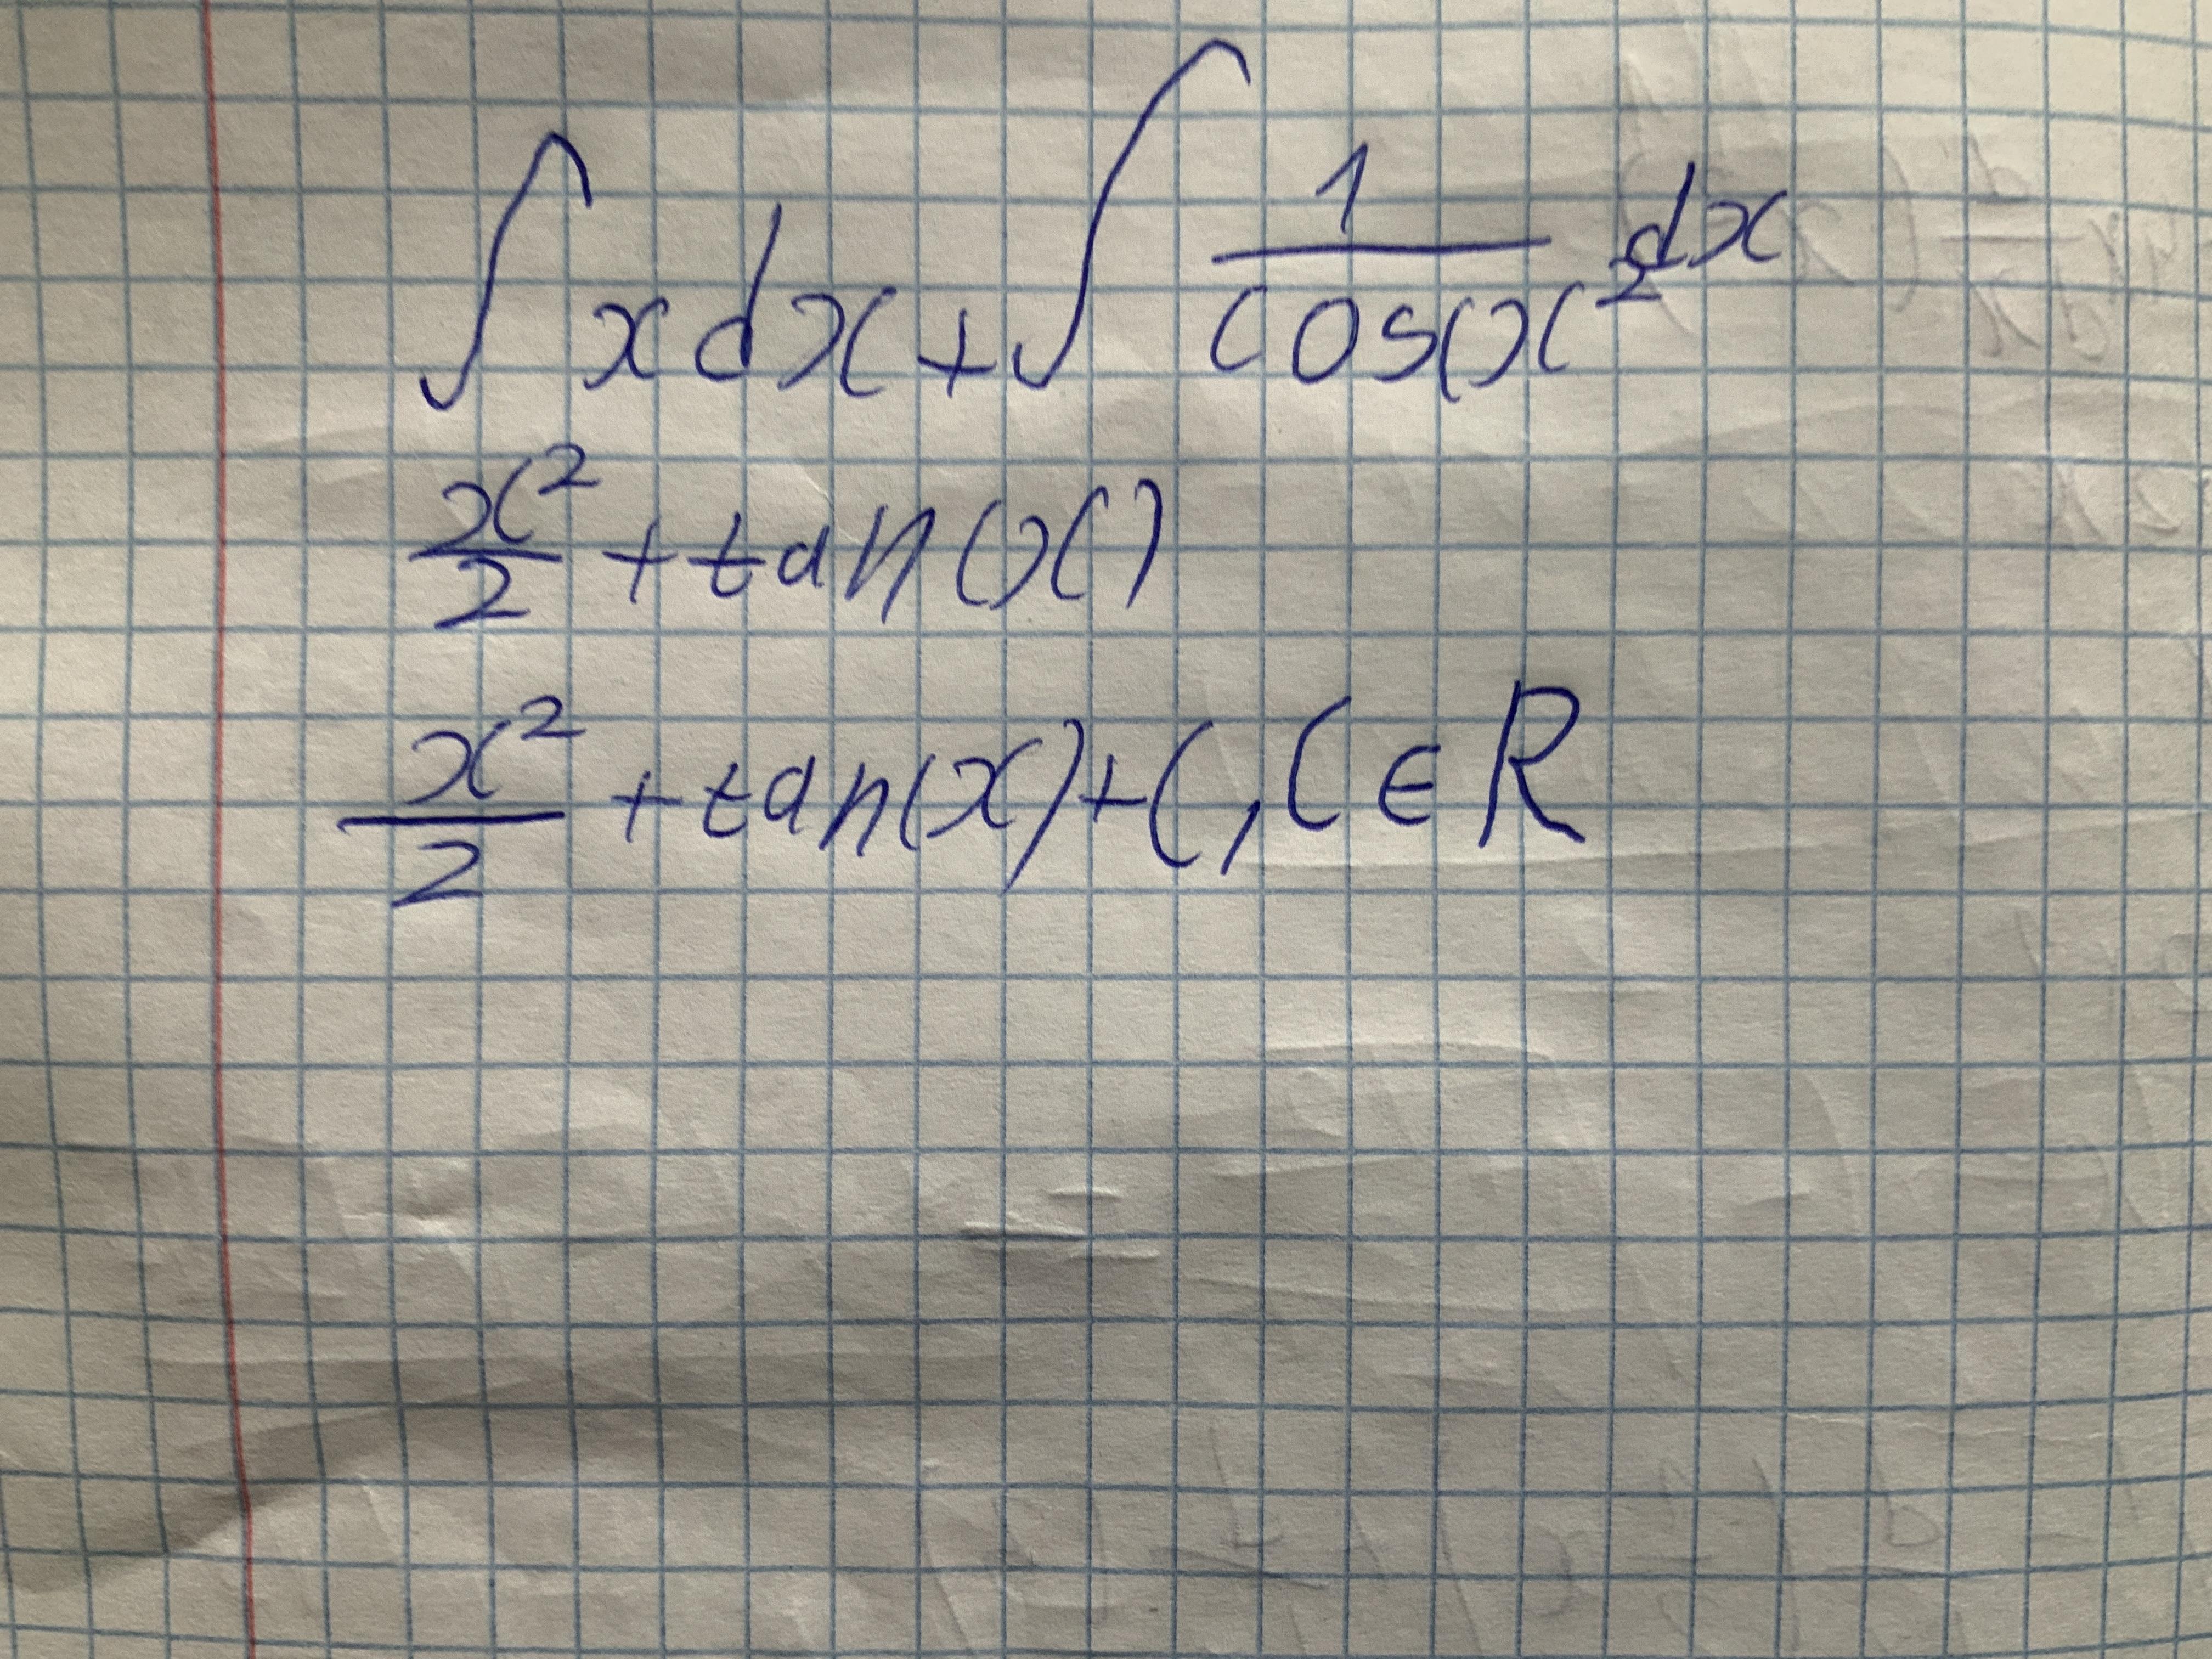 ∫xdx+∫1/cos(x²dx
x²/2+tan(x)
x²/2+tan(x)+C,C∈R